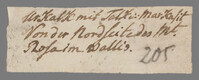 Urkalk mit Talk u. Markasit
Von der Nordseite des Mt.
Rosa im Wallis.
205